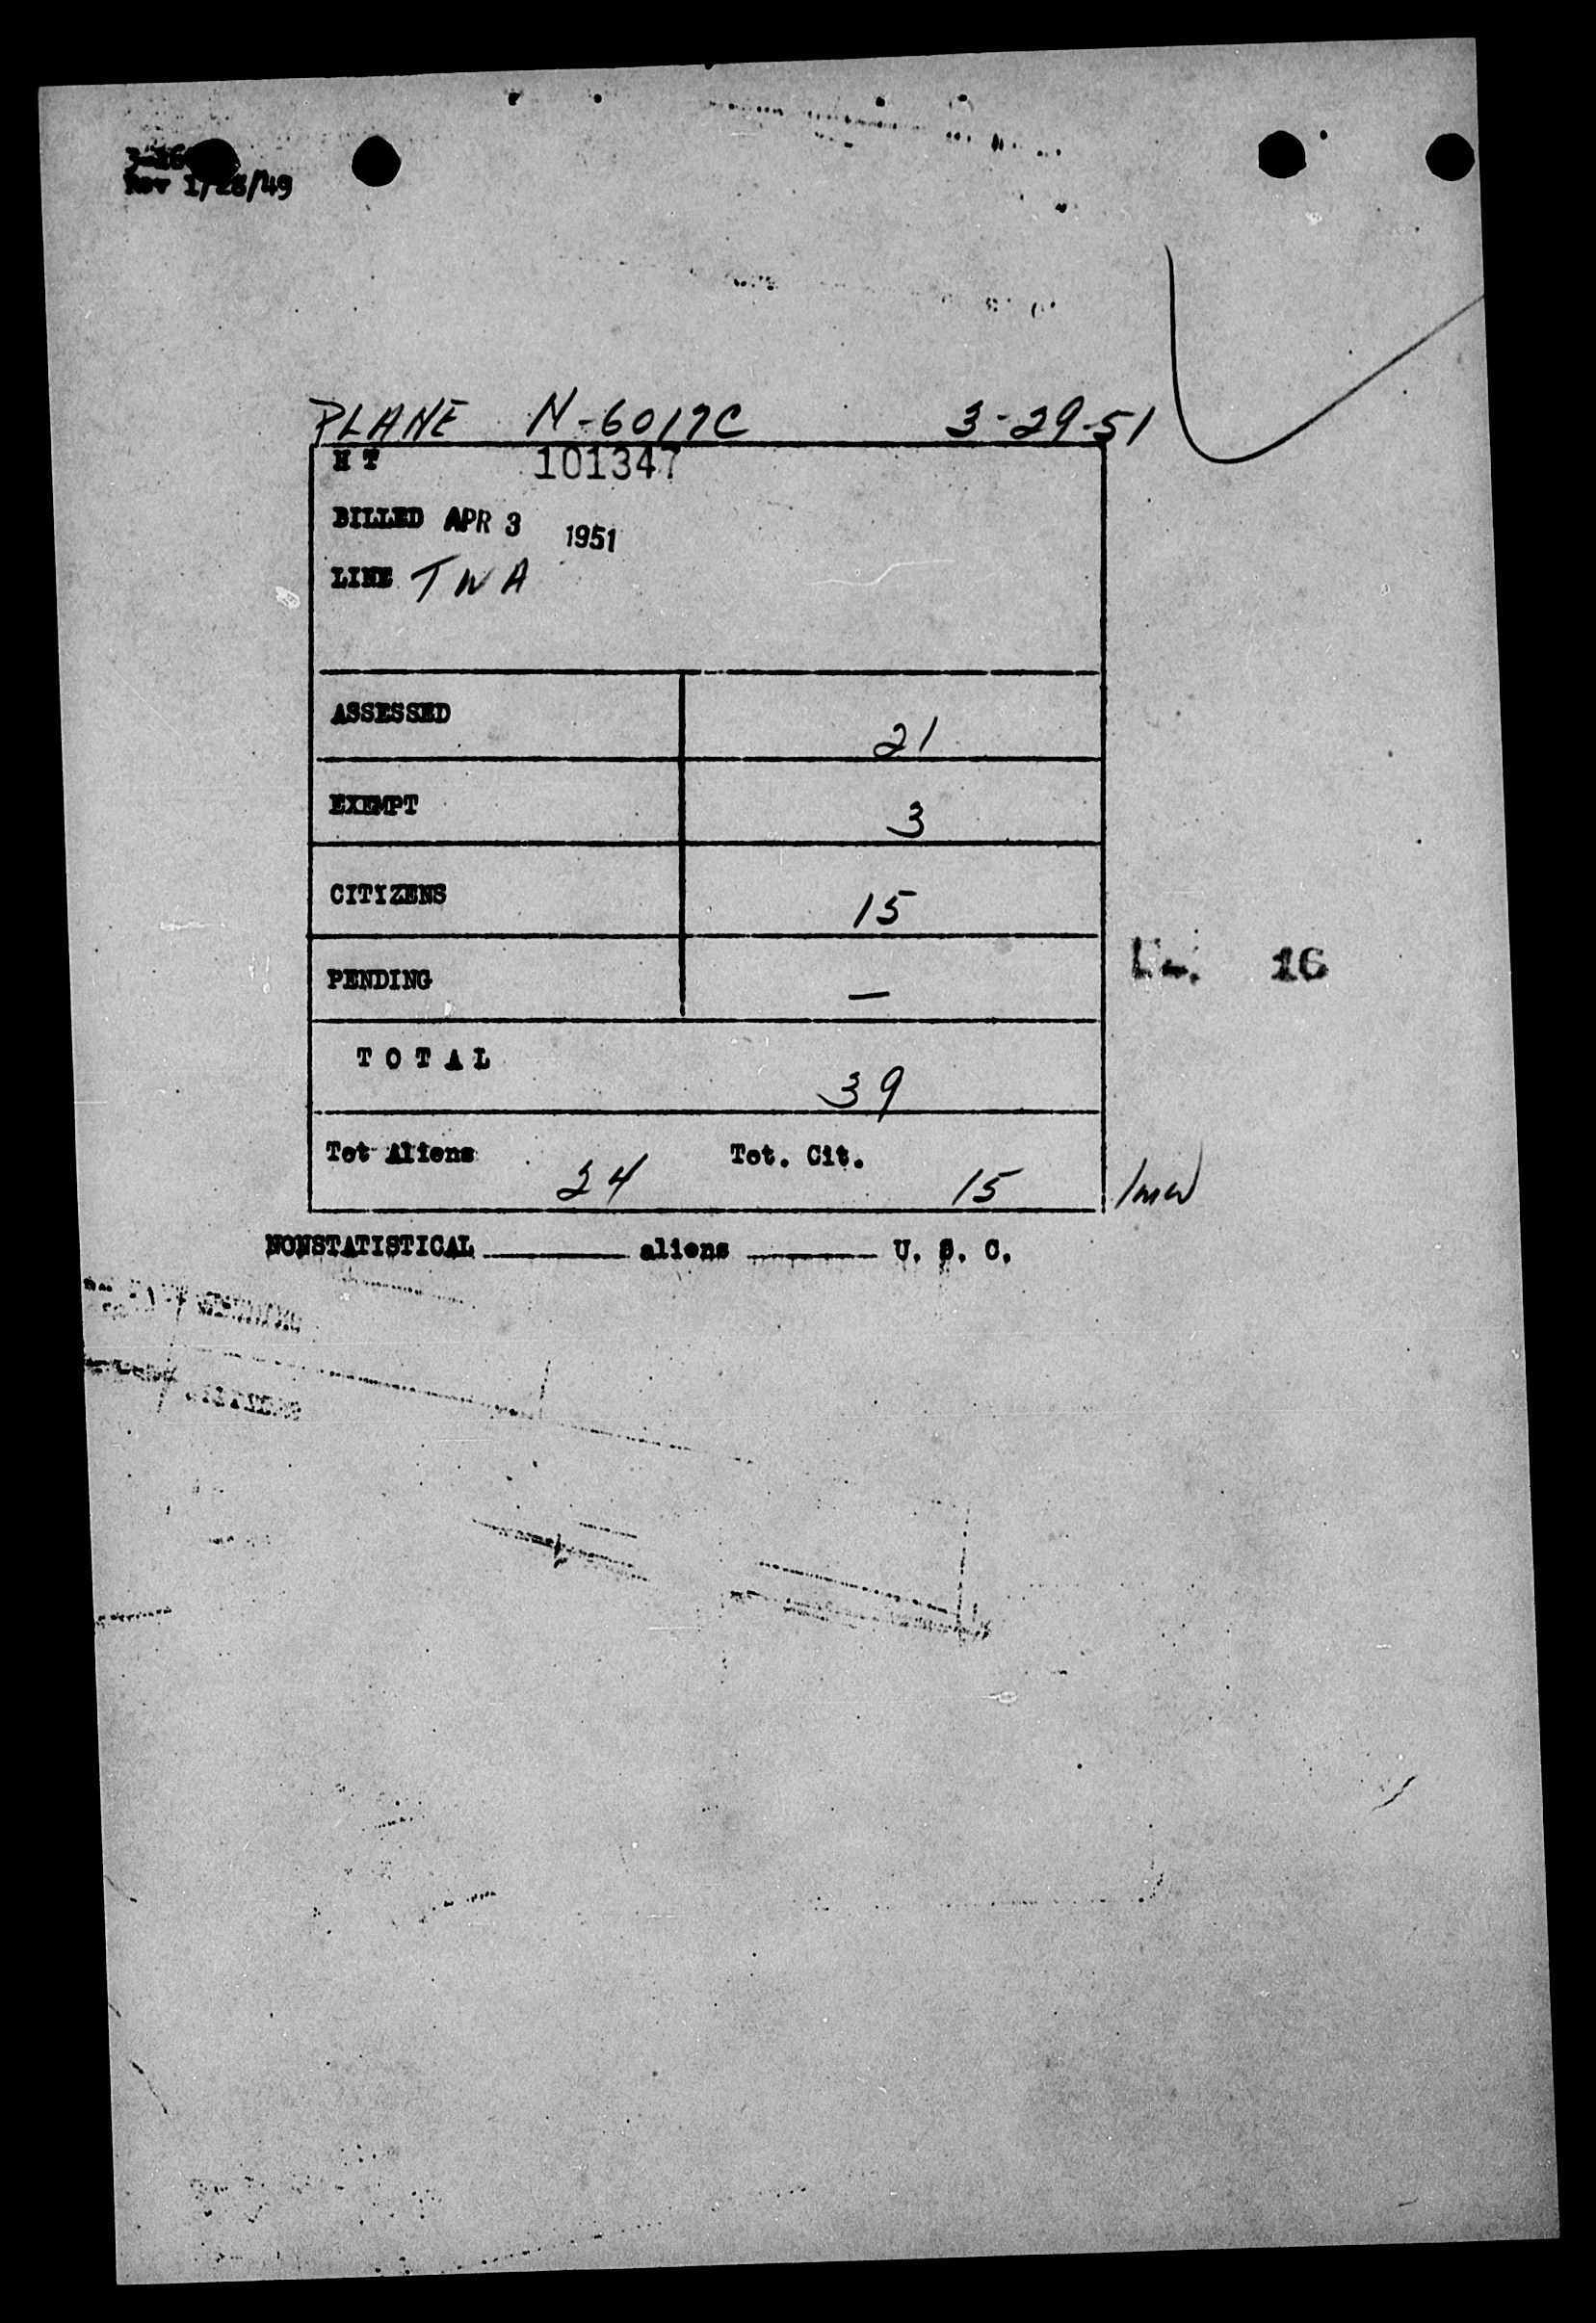 Rev 1/28/49
PLANE N-6017C 3-29-51
H T 101347
BILLED APR 3 1951
LINE TWA
ASSESSED 21
EXEMPT 3
CITIZENS 15
PENDING — 16
TOTAL 39
Tot Aliens 24 Tot. Cit. 15
NONSTATISTICAL ______ aliens ______ U. S. C.